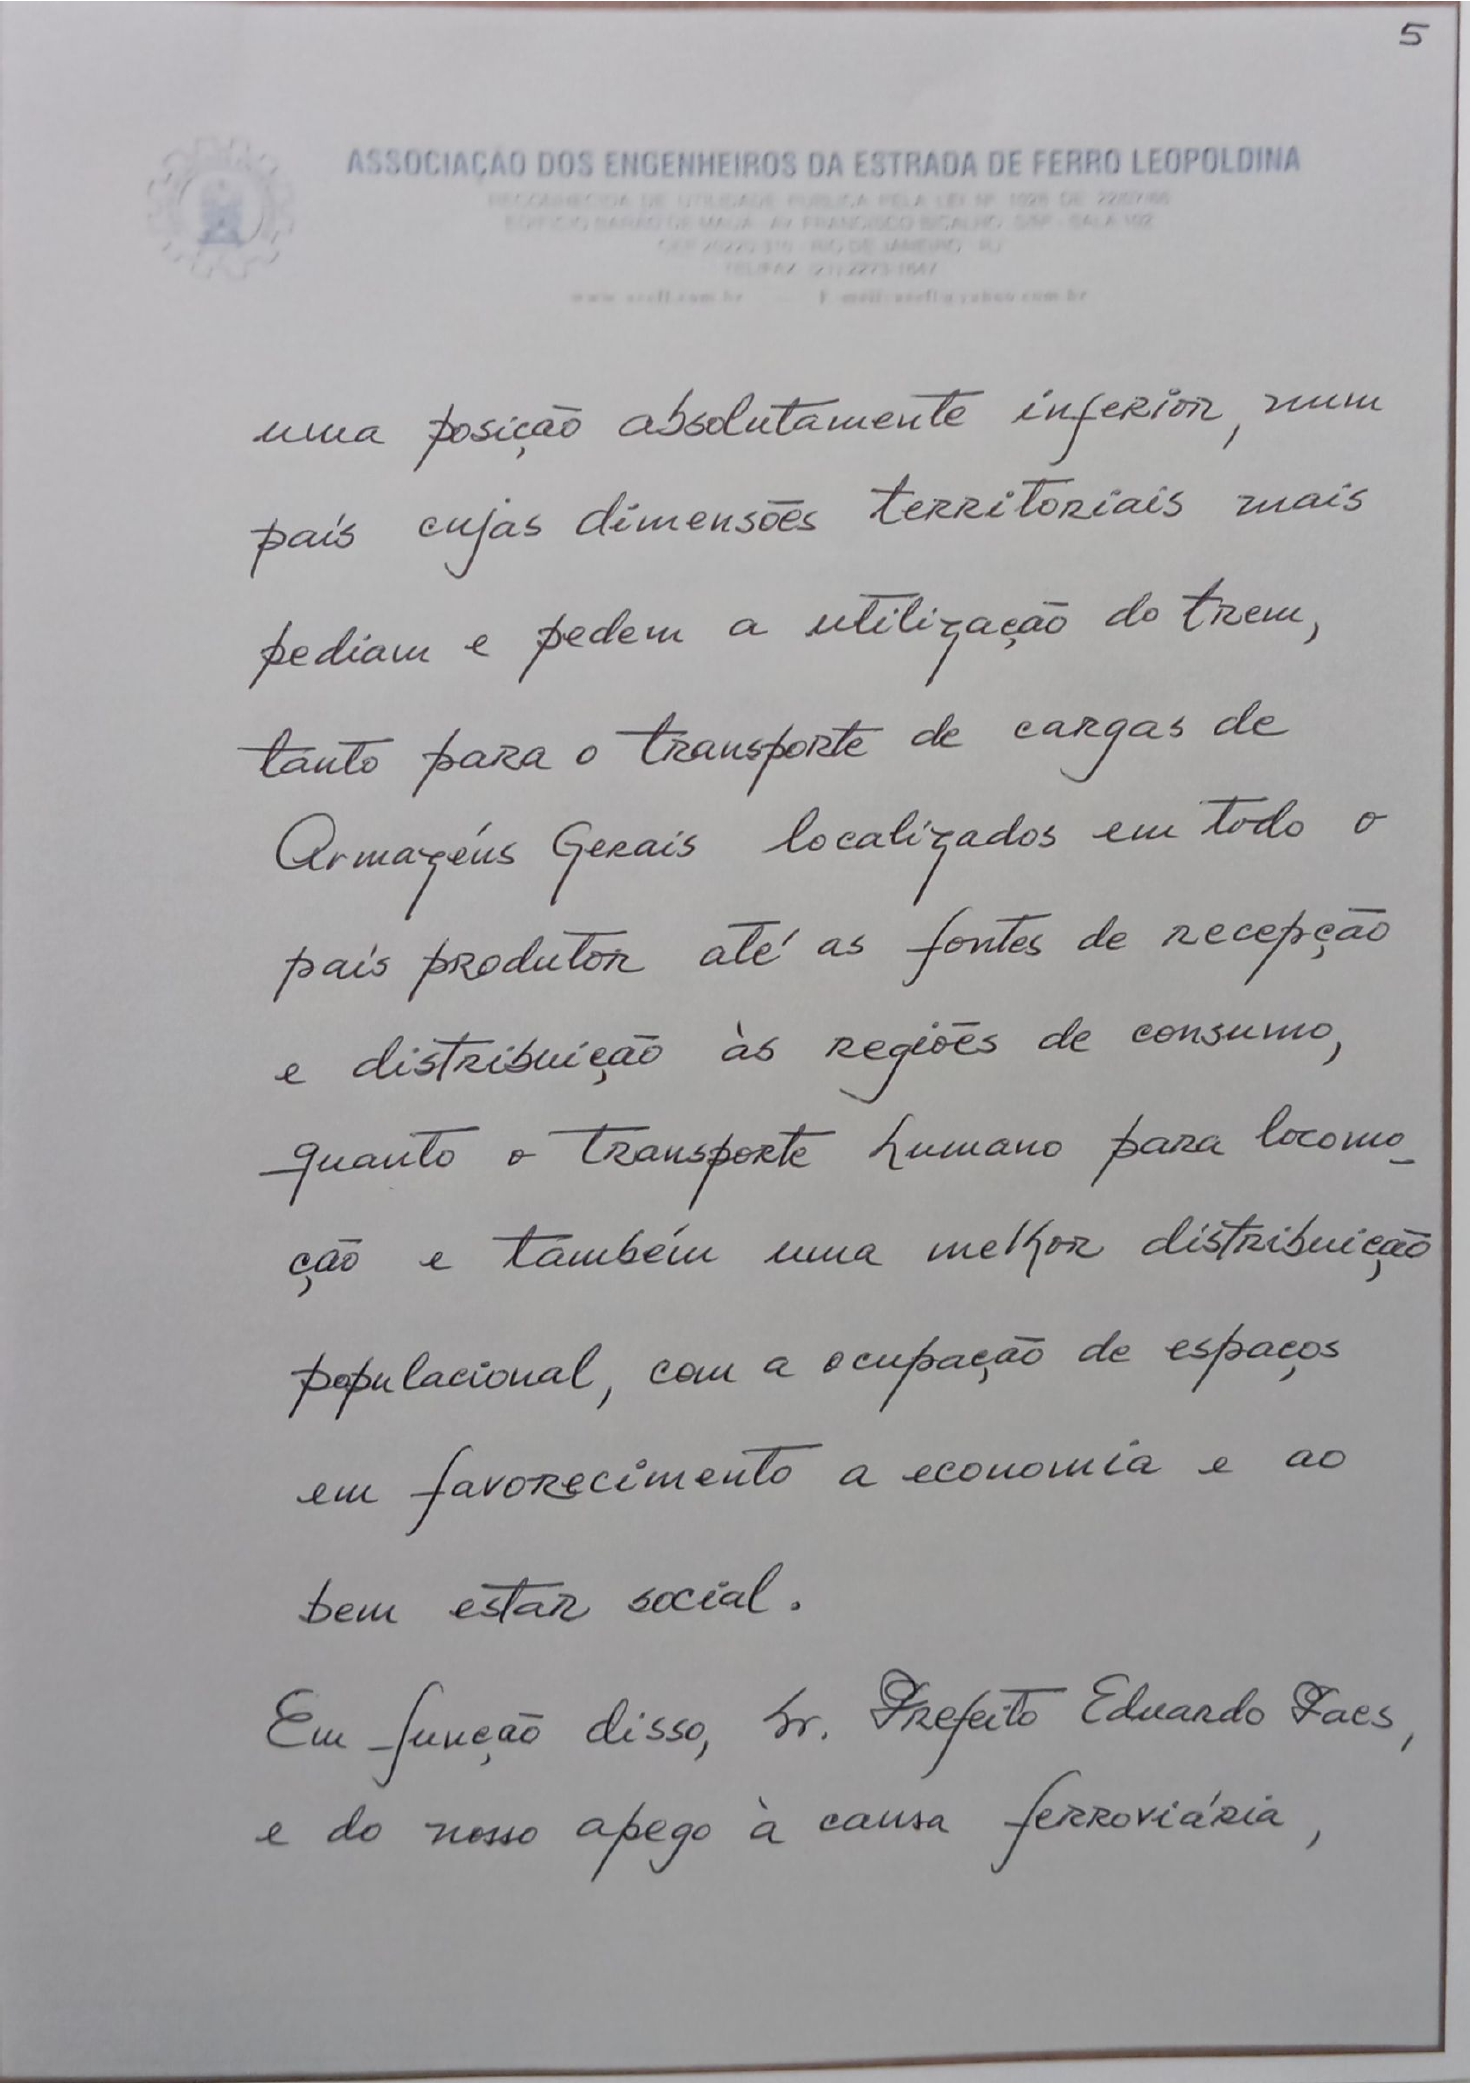 5
ASSOCIAÇÃO DOS ENGENHEIROS DA ESTRADA DE FERRO LEOPOLDINA
RECONHECIDA DE UTILIDADE PÚBLICA PELA LEI Nº 1028 DE 22/07/66
EDIFÍCIO BARÃO DE MAUÁ - AV. FRANCISCO BICALHO, S/Nº - SALA 102
CEP 20220-310 - RIO DE JANEIRO - RJ
TEL/FAX: (21) 2273-1647
www.aeefl.com.br E-mail:aeefl@yahoo.com.br
uma posição absolutamente inferior, num
país cujas dimensões territoriais mais
pediam e pedem a utilização do trem,
tanto para o transporte de cargas de
Armazéns Gerais localizados em todo o
país produtor até as fontes de recepção
e distribuição às regiões de consumo,
quanto o transporte humano para locomo_
ção e também uma melhor distribuição
populacional, com a ocupação de espaços
em favorecimento a economia e ao
bem estar social.
Em função disso, Sr. Prefeito Eduardo Paes,
e do nosso apego à causa ferroviária,